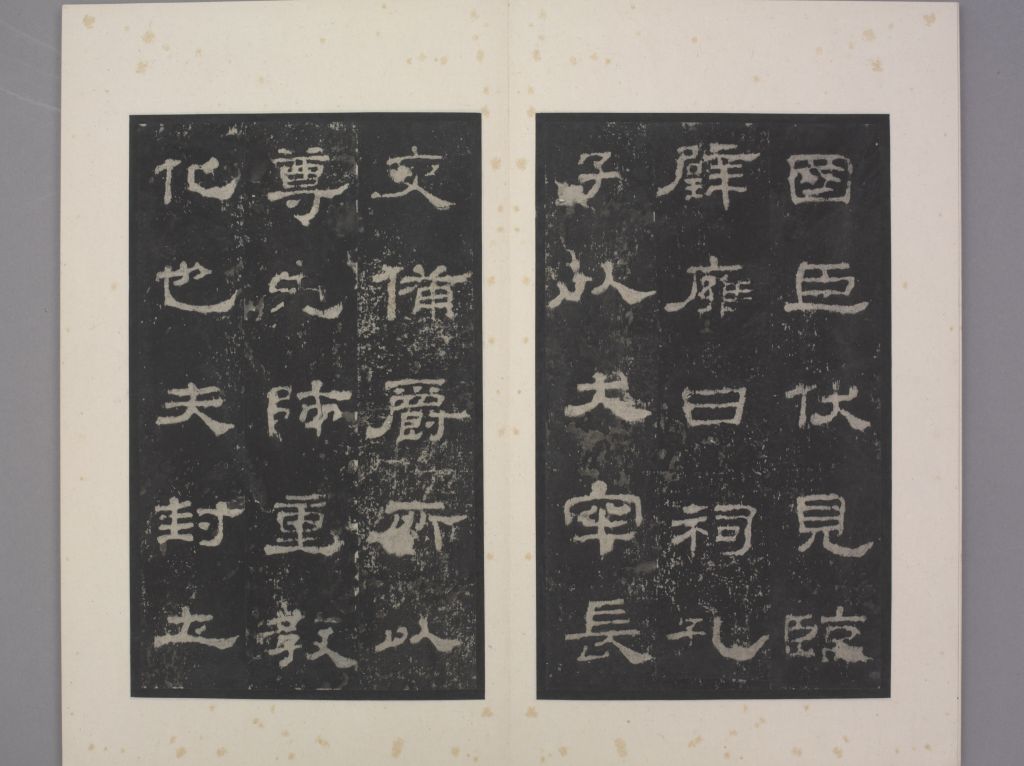 國臣伏見臨
辟雍日祠孔
子以大牢長
吏備爵所以
尊先師重教
化也夫封土